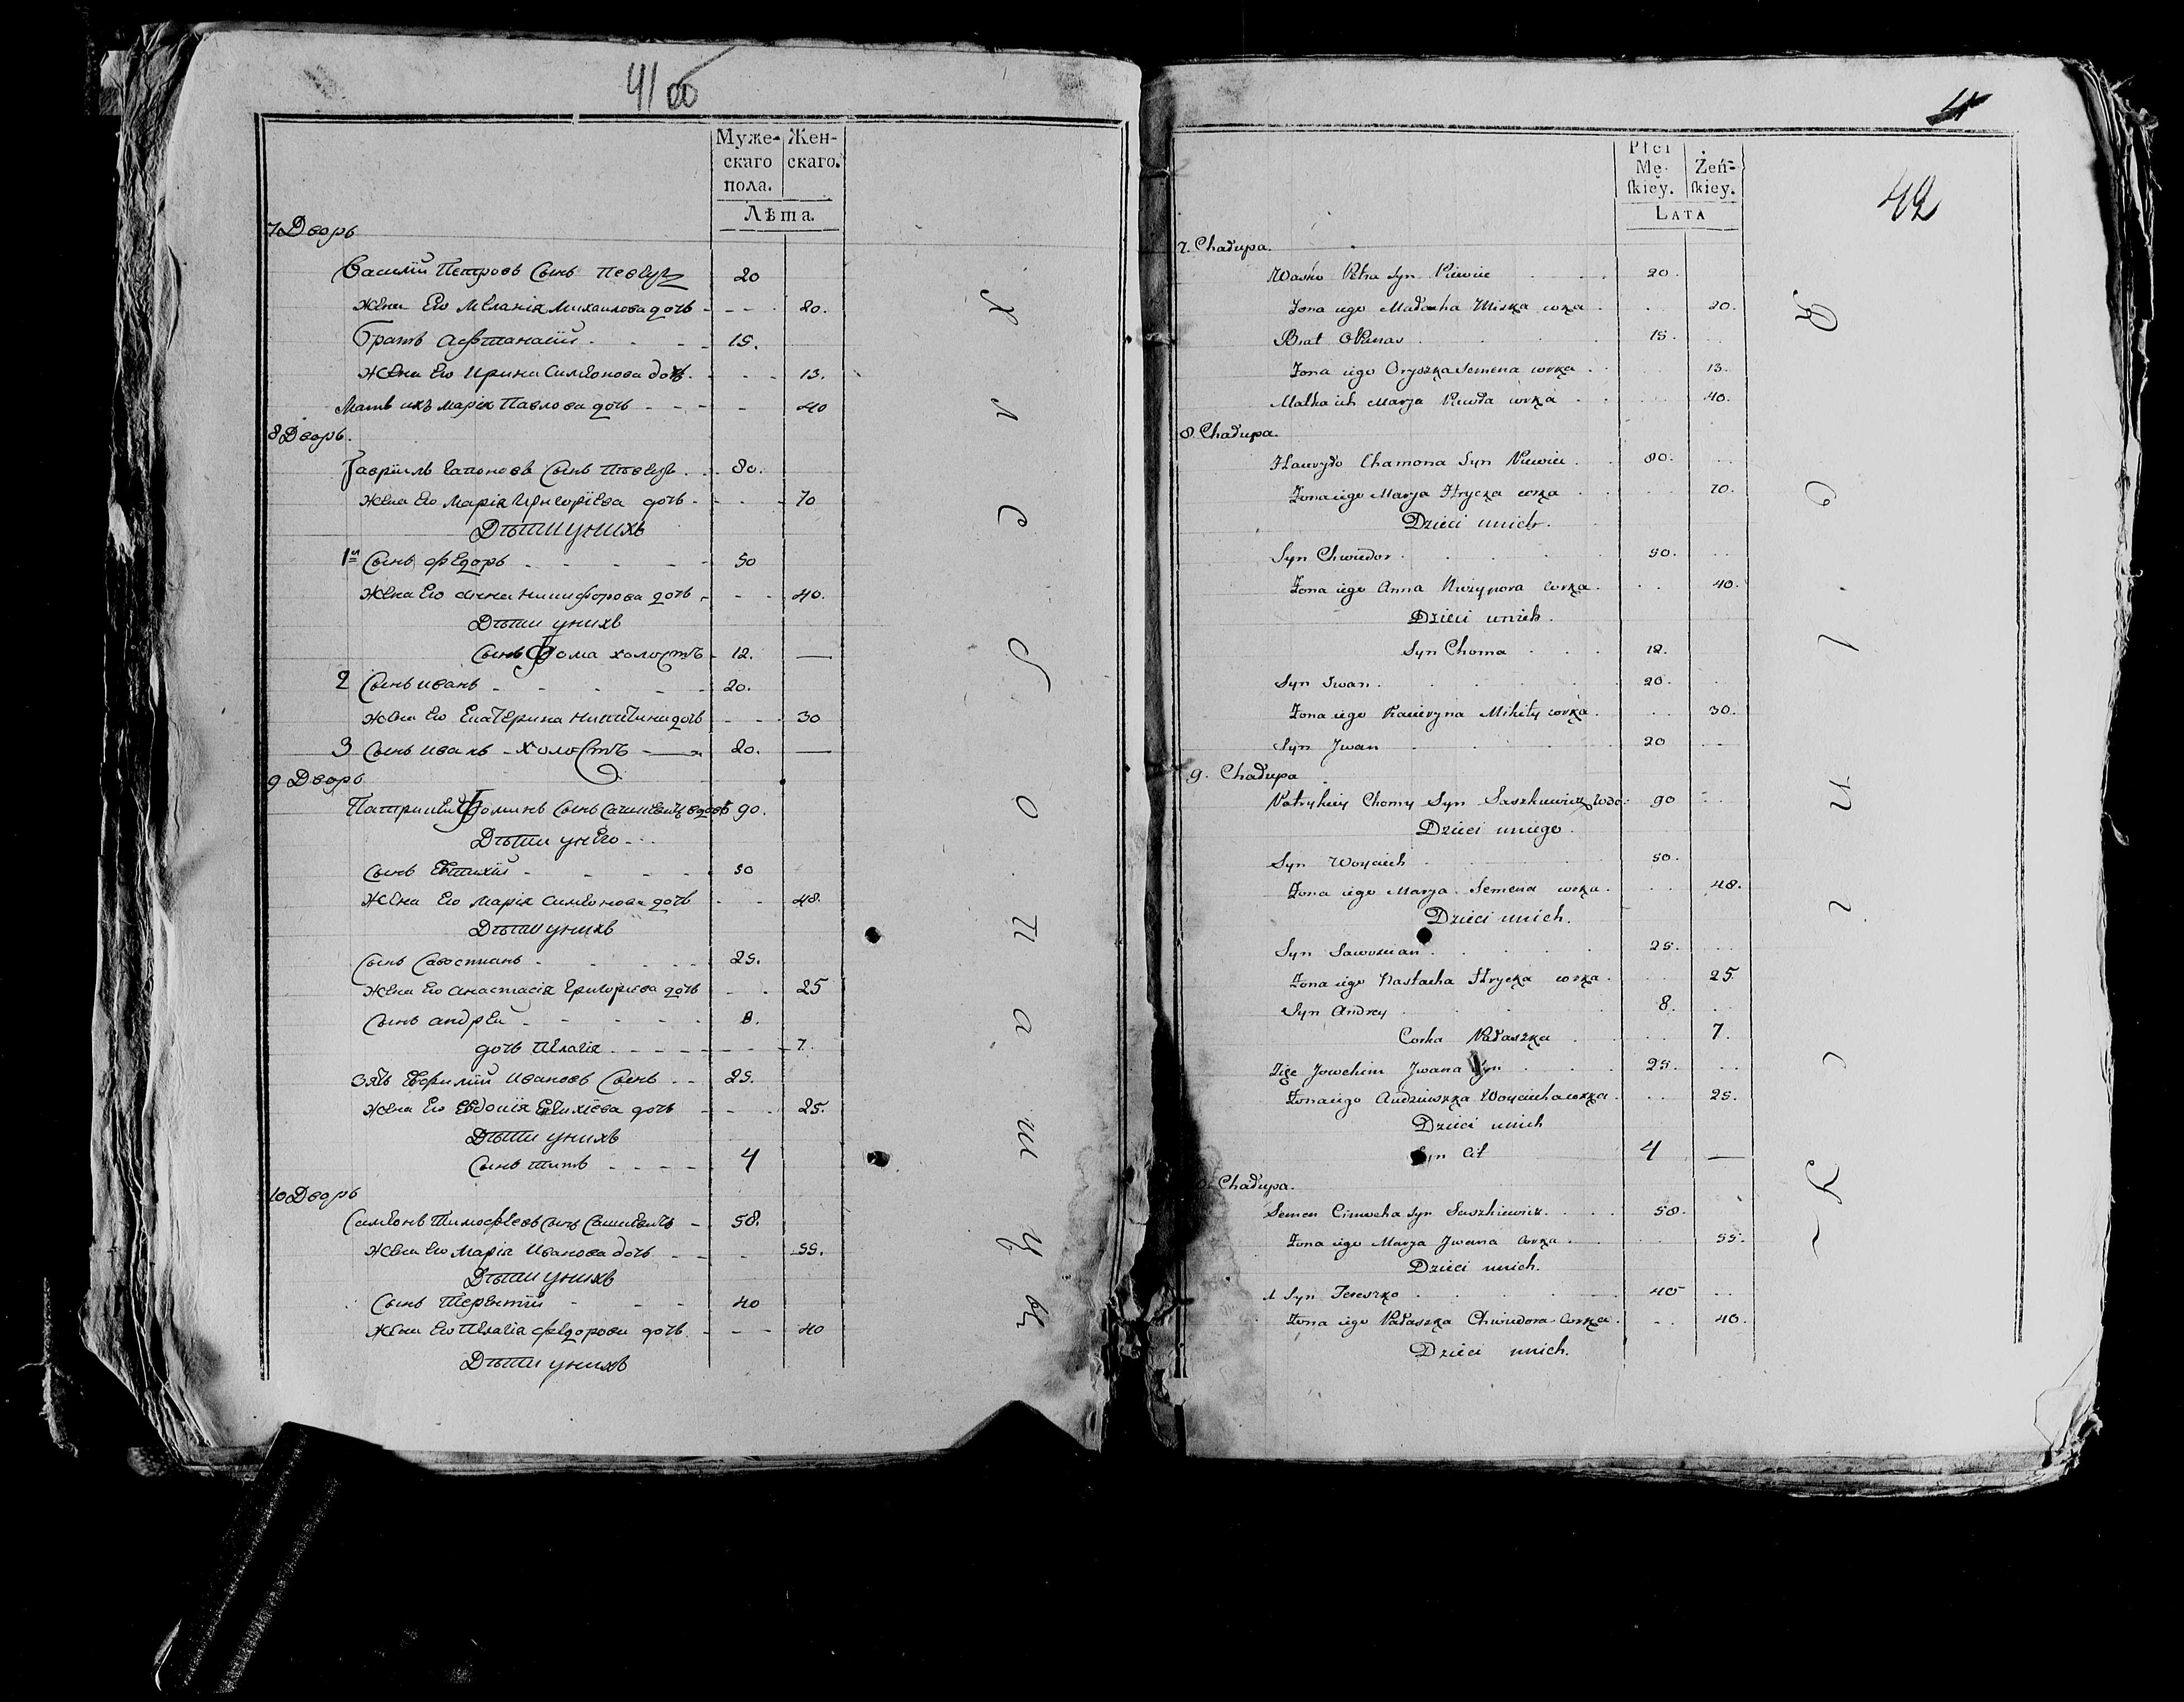 41 об
Муже- Жен-
скаго скаго.
пола.
Лѣта
7 Дворъ
Василій Петровъ Сынъ Певецъ 20
жена Его Меланія Михаилова дочь - - - 20.
Братъ Афтанасій - - - 15.
жена Его Ирина Симеонова дочь - - - 13.
Мать ихъ Марія Павлова дочь - - - 40
8 Дворъ.
Гавріилъ Гапоновъ Сынъ Певецъ - 80.
жена Его Марія Григоріева дочь - - - 70
Дѣти у нихъ
1й Сынъ Федоръ - - - 50
жена Его Анна Никифорова дочь - - - 40.
Дѣти у нихъ
Сынъ Фома холостъ - 12. —
2 Сынъ Иванъ - - - 20.
жена Его Екатерина Никитина дочь - - 30
3 Сынъ Иванъ - холостъ — 20. —
9 Дворъ
Патрикей Фоминъ Сынъ Сашкевичъ вдовъ 90.
Дѣти у него - . .
Сынъ Евтихій - - - 50
жена Его Марія Симеонова дочь - - 48.
Дѣти у нихъ
Сынъ Савостианъ - - - 25.
жена Его Анастасія Григориева дочь - - 25
Сынъ Андрей - - - 8.
дочь Пелагія - - - 7.
Зять Ефримій Ивановъ Сынъ - - 25.
жена Его Евдокія Евтихіева дочь - - 25.
Дѣти у нихъ
Сынъ Титъ - - - 4
10 Дворъ
Симеонъ Тимофѣевъ Сынъ Сашкевичъ - 58.
жена Его Марія Иванова дочь - - 55.
Дѣти у нихъ
Сынъ Терентій - - - 40
жена Его Пелагія Федорова дочь - - 40
Дѣти у нихъ
С о п а ш и ц ы
42
Płci
Mę- Żeń-
skiey. skiey.
LATA
7. Chałupa.
Wasko Petra Syn Piewiec . . . 20.
Zona iego Małanha Miska corka . . . 20.
Brat Opanas . . . 15. . .
Zona iego Oryszka Semena corka . . . 13.
Matka ich Marya Pawła corka . . . 40.
8. Chałupa.
Hawryło Chamona Syn Piewiec . . 80. . .
Zona iego Marya Hrycka corka . . . 70.
Dzieci unich.
Syn Chwiedor . . . 50. . .
Zona iego Anna Niczypora corka . . . 40.
Dzieci unich.
Syn Choma . . . 12.
Syn Iwan . . . 20. . .
Zona iego Kacieryna Mikity corka . . . 30.
Syn Jwan . . . 20 . .
9. Chałupa
Patrykiey Chomy Syn Saszkiewicz Wdo: 90 . .
Dzieci uniego.
Syn Woyciech . . . 50.
Zona iego Marya Semena corka . . . 48.
Dzieci unich.
Syn Sawoscian . . . 25. . .
Zona iego Nastacha Hrycka corka . . . 25
Syn Andrey . . . 8. . .
Corka Pałaszka . . . 7.
Zięc Jowchim Jwana Syn . . . 25. . .
Zona iego Audziuszka Woyciecha corka . . . 25.
Dzieci unich
Syn Cit 4 —
Chałupa.
Semen Cimocha Syn Saszkiewicz . . . 58.
Zona iego Marya Jwana Corka . . . 55.
Dzieci unich.
1 Syn Tereszko . . . 40 . .
Zona iego Pałaszka Chwiedora Corka . . . 40.
Dzieci unich.